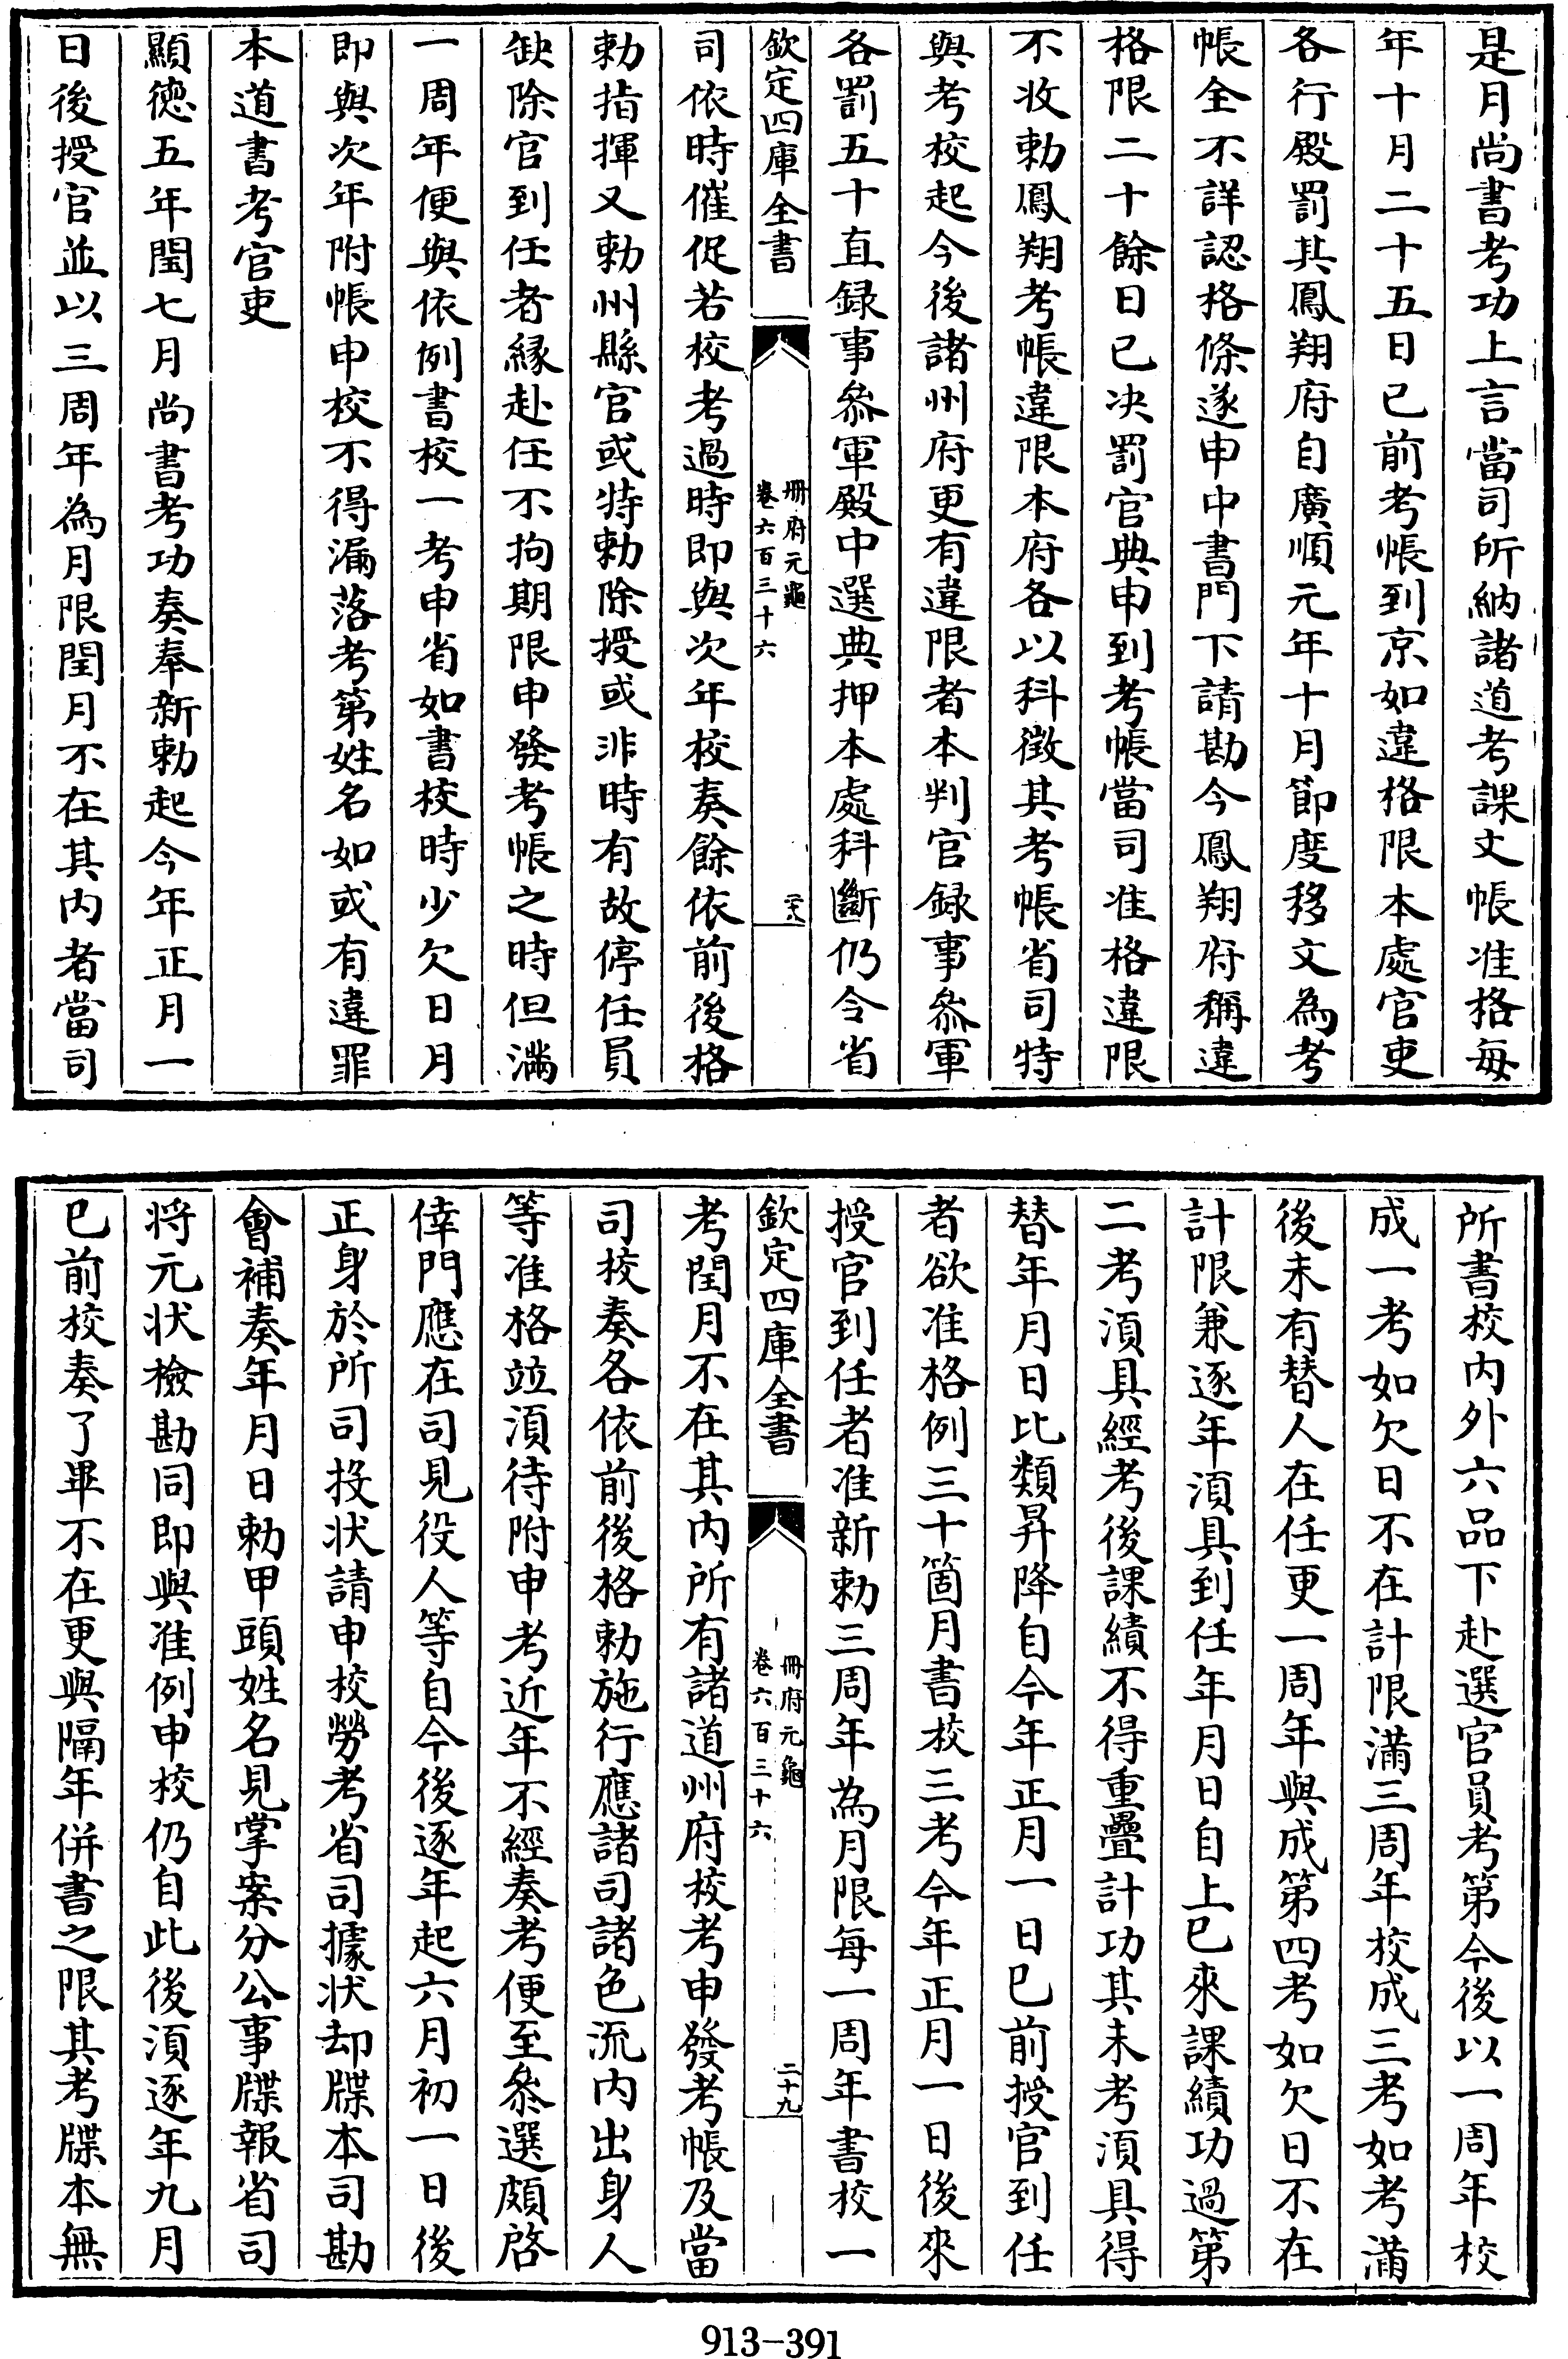 是月尚書考功上言當司所納諸道考課文帳准格每
年十月二十五日已前考帳到京如違格限本處官吏
各行殿罰其鳳翔府自廣順元年十月節度移文為考
帳全不詳認格條遂申中書門下請勘今鳳翔府稱違
格限二十餘日已決罰官典申到考帳當司准格違限
不收勅鳳翔考帳違限本府各以科徴其考帳省司特
與考校起今後諸州府更有違限者本判官録事叅軍
各罰五十直録事叅軍殿中選典押本處科斷仍令省
欽定四庫全書
冊府元龜
卷六百三十六
二十八
司依時催促若校考過時即與次年校奏餘依前後格
勅指揮又勅州縣官或特勅除授或非時有故停任員
缺除官到任者縁赴任不拘期限申發考帳之時但滿
一周年便與依例書校一考申省如書校時少欠日月
即與次年附帳申校不得漏落考第姓名如或有違罪
本道書考官吏
顯徳五年閏七月尚書考功奏奉新勅起今年正月一
日後授官並以三周年為月限閏月不在其內者當司
所書校内外六品下赴選官員考第今後以一周年校
成一考如欠日不在計限滿三周年校成三考如考滿
後未有替人在任更一周年與成第四考如欠日不在
計限兼逐年湏具到任年月日自上已來課績功過第
二考湏具經考後課績不得重疊計功其未考湏具得
替年月日比類昇降自今年正月一日已前授官到任
者欲准格例三十箇月書校三考今年正月一日後來
授官到任者准新勅三周年為月限每一周年書校一
欽定四庫全書
冊府元龜
卷六百三十六
二十九
考閏月不在其內所有諸道州府校考申發考帳及當
司校奏各依前後格勅施行應諸司諸色流内出身人
等准格竝湏待附申考近年不經奏考便至叅選頗啓
倖門應在司見役人等自今後逐年起六月初一日後
正身於所司投狀請申校勞考省司據狀却牒本司勘
會補奏年月日勅甲頭姓名見掌案分公事牒報省司
将元狀檢勘同即與准例申校仍自此後湏逐年九月
已前校奏了畢不在更與隔年併書之限其考牒本無
913-391